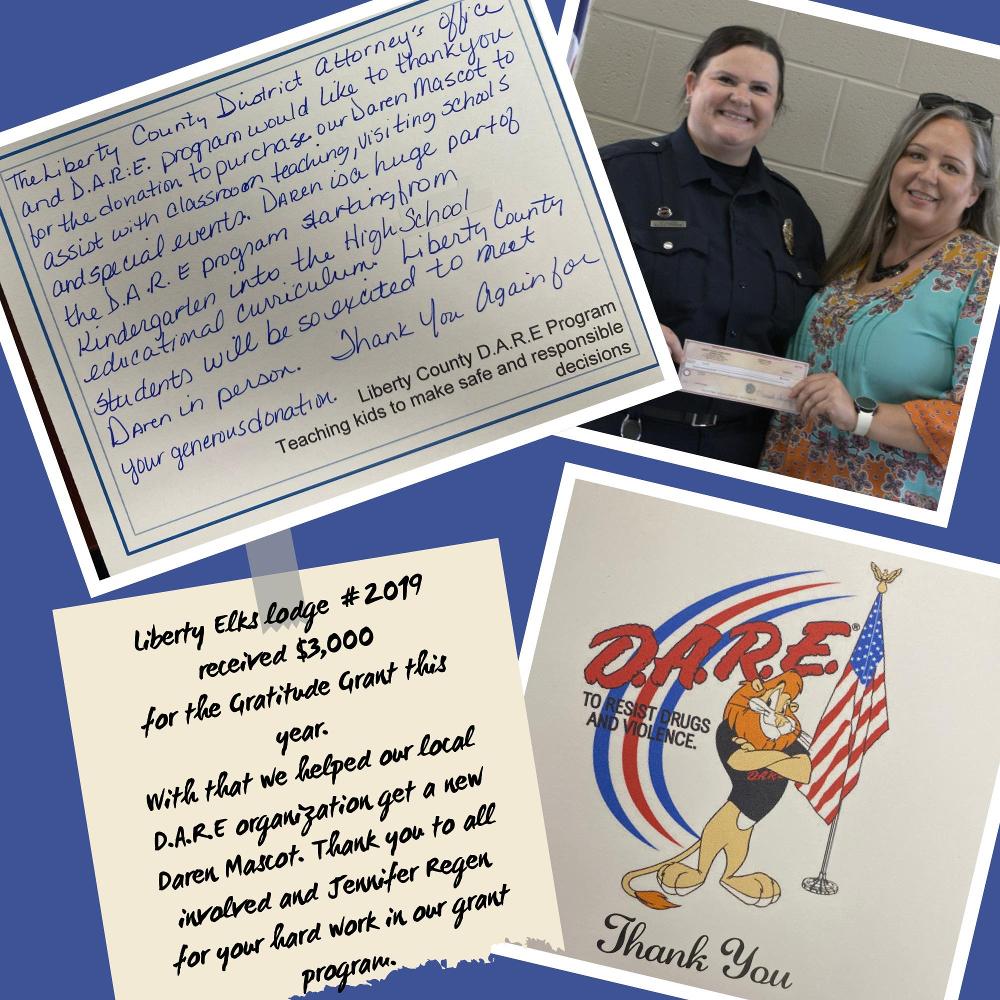 The Liberty County District Attorney's office
and D.A.R.E. program would like to thank you
for the donation to purchase our Daren Mascot to
assist with classroom teaching, visiting schools
and special events. Daren is a huge part of
the D.A.R.E program starting from
Kindergarten into the High School
educational curriculum. Liberty County
Students will be so excited to meet
Daren in person. Thank You Again for
your generous donation.
Liberty County D.A.R.E Program
Teaching kids to make safe and responsible
decisions
Liberty Elks lodge #2019
received $3,000
for the Gratitude Grant this
year.
With that we helped our local
D.A.R.E organization get a new
Daren Mascot. Thank you to all
involved and Jennifer Regen
for your hard work in our grant
program.
D.A.R.E.®
TO RESIST DRUGS
AND VIOLENCE.
D.A.R.E.
Thank You